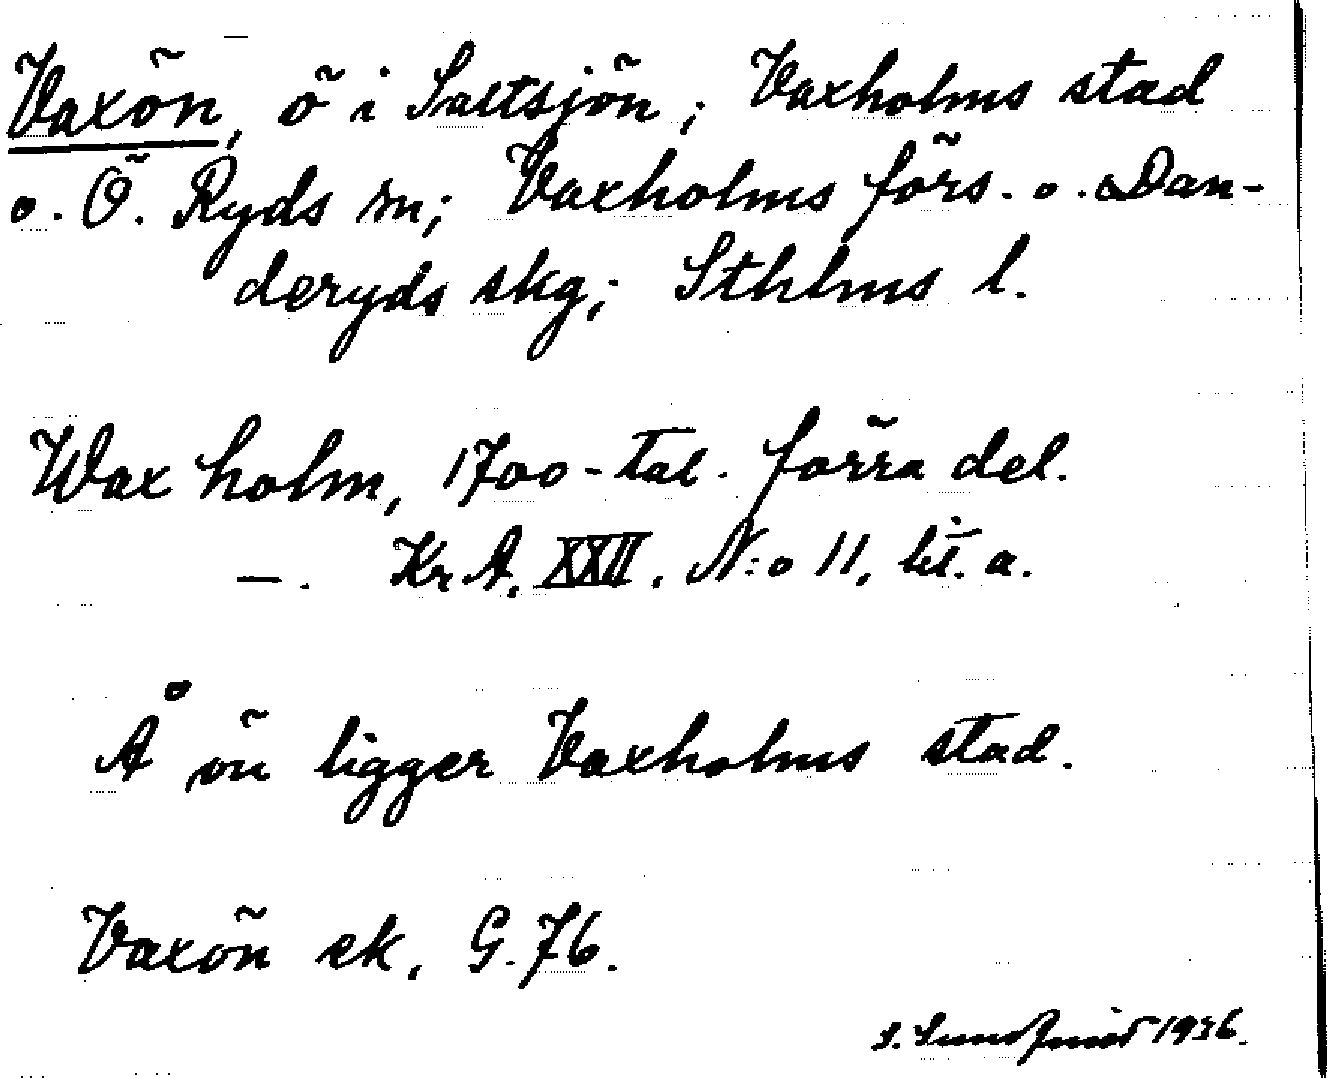 Vaxön, ö i Saltsjön; Vaxholms stad
o. Ö. Ryds sn; Vaxholms förs. o. Dan-
deryds skg; Sthlms l.
Wax holm, 1700-tal. förra del.
—. KrA, XXII. N:o 11, lit. a.
Å ön ligger Vaxholms stad.
Vaxön ek, G. 76.
1936.